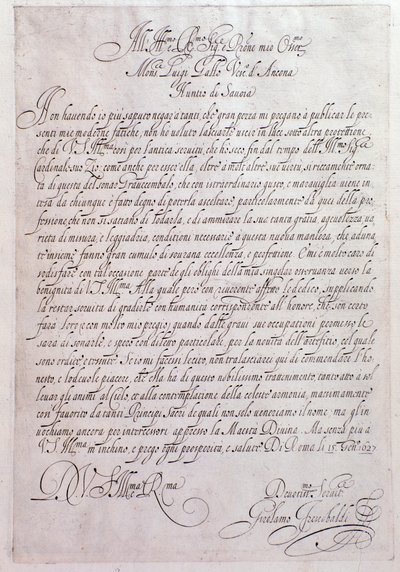 All' Ill.mo e R.mo Sig.r e P̃rone mio Oss.mo
Mons.r Luigi Gallo Vesc.o d'Ancona
Nuntio di Savoia
Non havendo io più saputo negar à tanti, che gran pezza mi pregano à publicar le pre
senti mie modeste fatiche, non ho voluto lasciarle uscir in luce sotto altra protettione
che di V.S. Ill.ma così per l'antica servitù, che ho seco fin dal tempo dell' Ill.mo Sig.r
Cardinal suo Zio, come anche per esser ella, oltre à molt' altre sue virtù, sì riccamente orna
ta di questa del sonar Gravecembalo, che con istraordinario gusto, e maraviglia viene in
tesa da chiunque è fatto degno di poterla ascoltare; particolarmente da quei della pro
fessione che non si satiano di lodarla, e di ammirare la sua tanta gratia, agevolezza, va
rietà di misura, e leggiadria, conditioni necessarie à questa nuova maniera, che aduna
te insieme fanno gran cumulo di sovrana eccellenza, e perfettione. Emmi è molto caro di
sodisfare con tal occasione parte degli oblighi della mia singolar osservanza verso la
benignità di V.S. Ill.ma Alla quale però con riverente affetto le dedico, supplicando
la restar servita di gradirle con humanità corrispondente all' honore, che son certo
farà loro (e con molto mio pregio) quando dalle gravi sue occupationi permesso le
sarà di sonarle, e spero con diletto particolare, per la novità dell' artefitio, col quale
sono ordite, e tessute. Se io mi facessi lecito, non tralascierei quì di commendare l'ho
nesto, e lodevole piacere, ch' ella hà di questo nobilissimo trattenimento, tant' atto à sol
levar gli animi al Cielo, et alla contemplatione della celeste armonia, massimamente
così favorito da tanti Principi Sacri de quali non solo veneriamo il nome; ma gl' in
vochiamo ancora per intercessori appresso la Maestà Divina. Ma senza più a
V.S. Ill.ma m'inchino, e prego ogni prosperità, e salute. Di Roma li 15. Gen.o 1627.
D. V. S. Ill.ma e R.ma
Devotiss.o Servit.re
Girolamo Frescobaldi